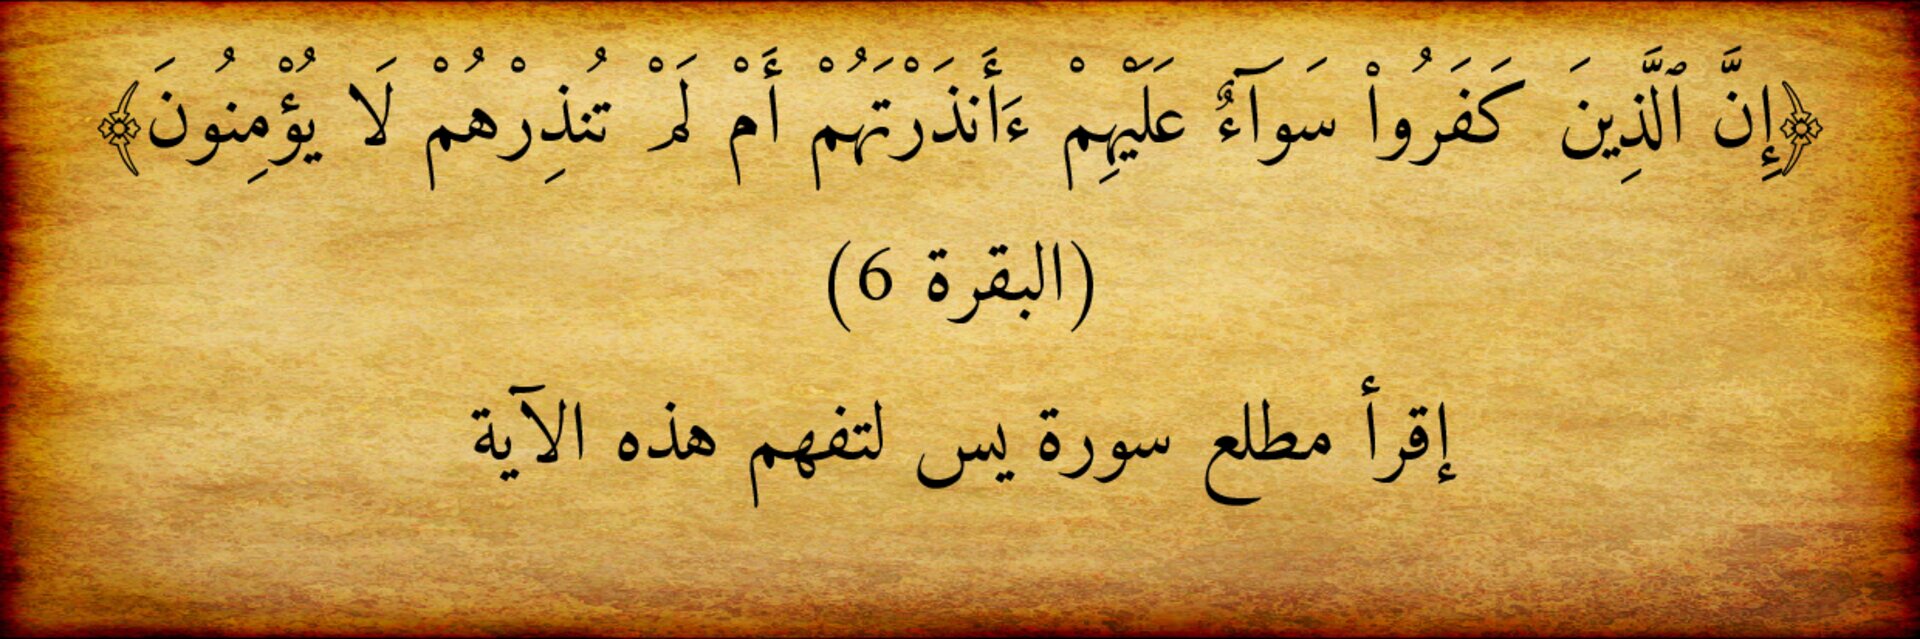 ﴿إِنَّ ٱلَّذِينَ كَفَرُوا۟ سَوَآءٌ عَلَيْهِمْ ءَأَنذَرْتَهُمْ أَمْ لَمْ تُنذِرْهُمْ لَا يُؤْمِنُونَ﴾
(البقرة 6)
إقرأ مطلع سورة يس لتفهم هذه الآية